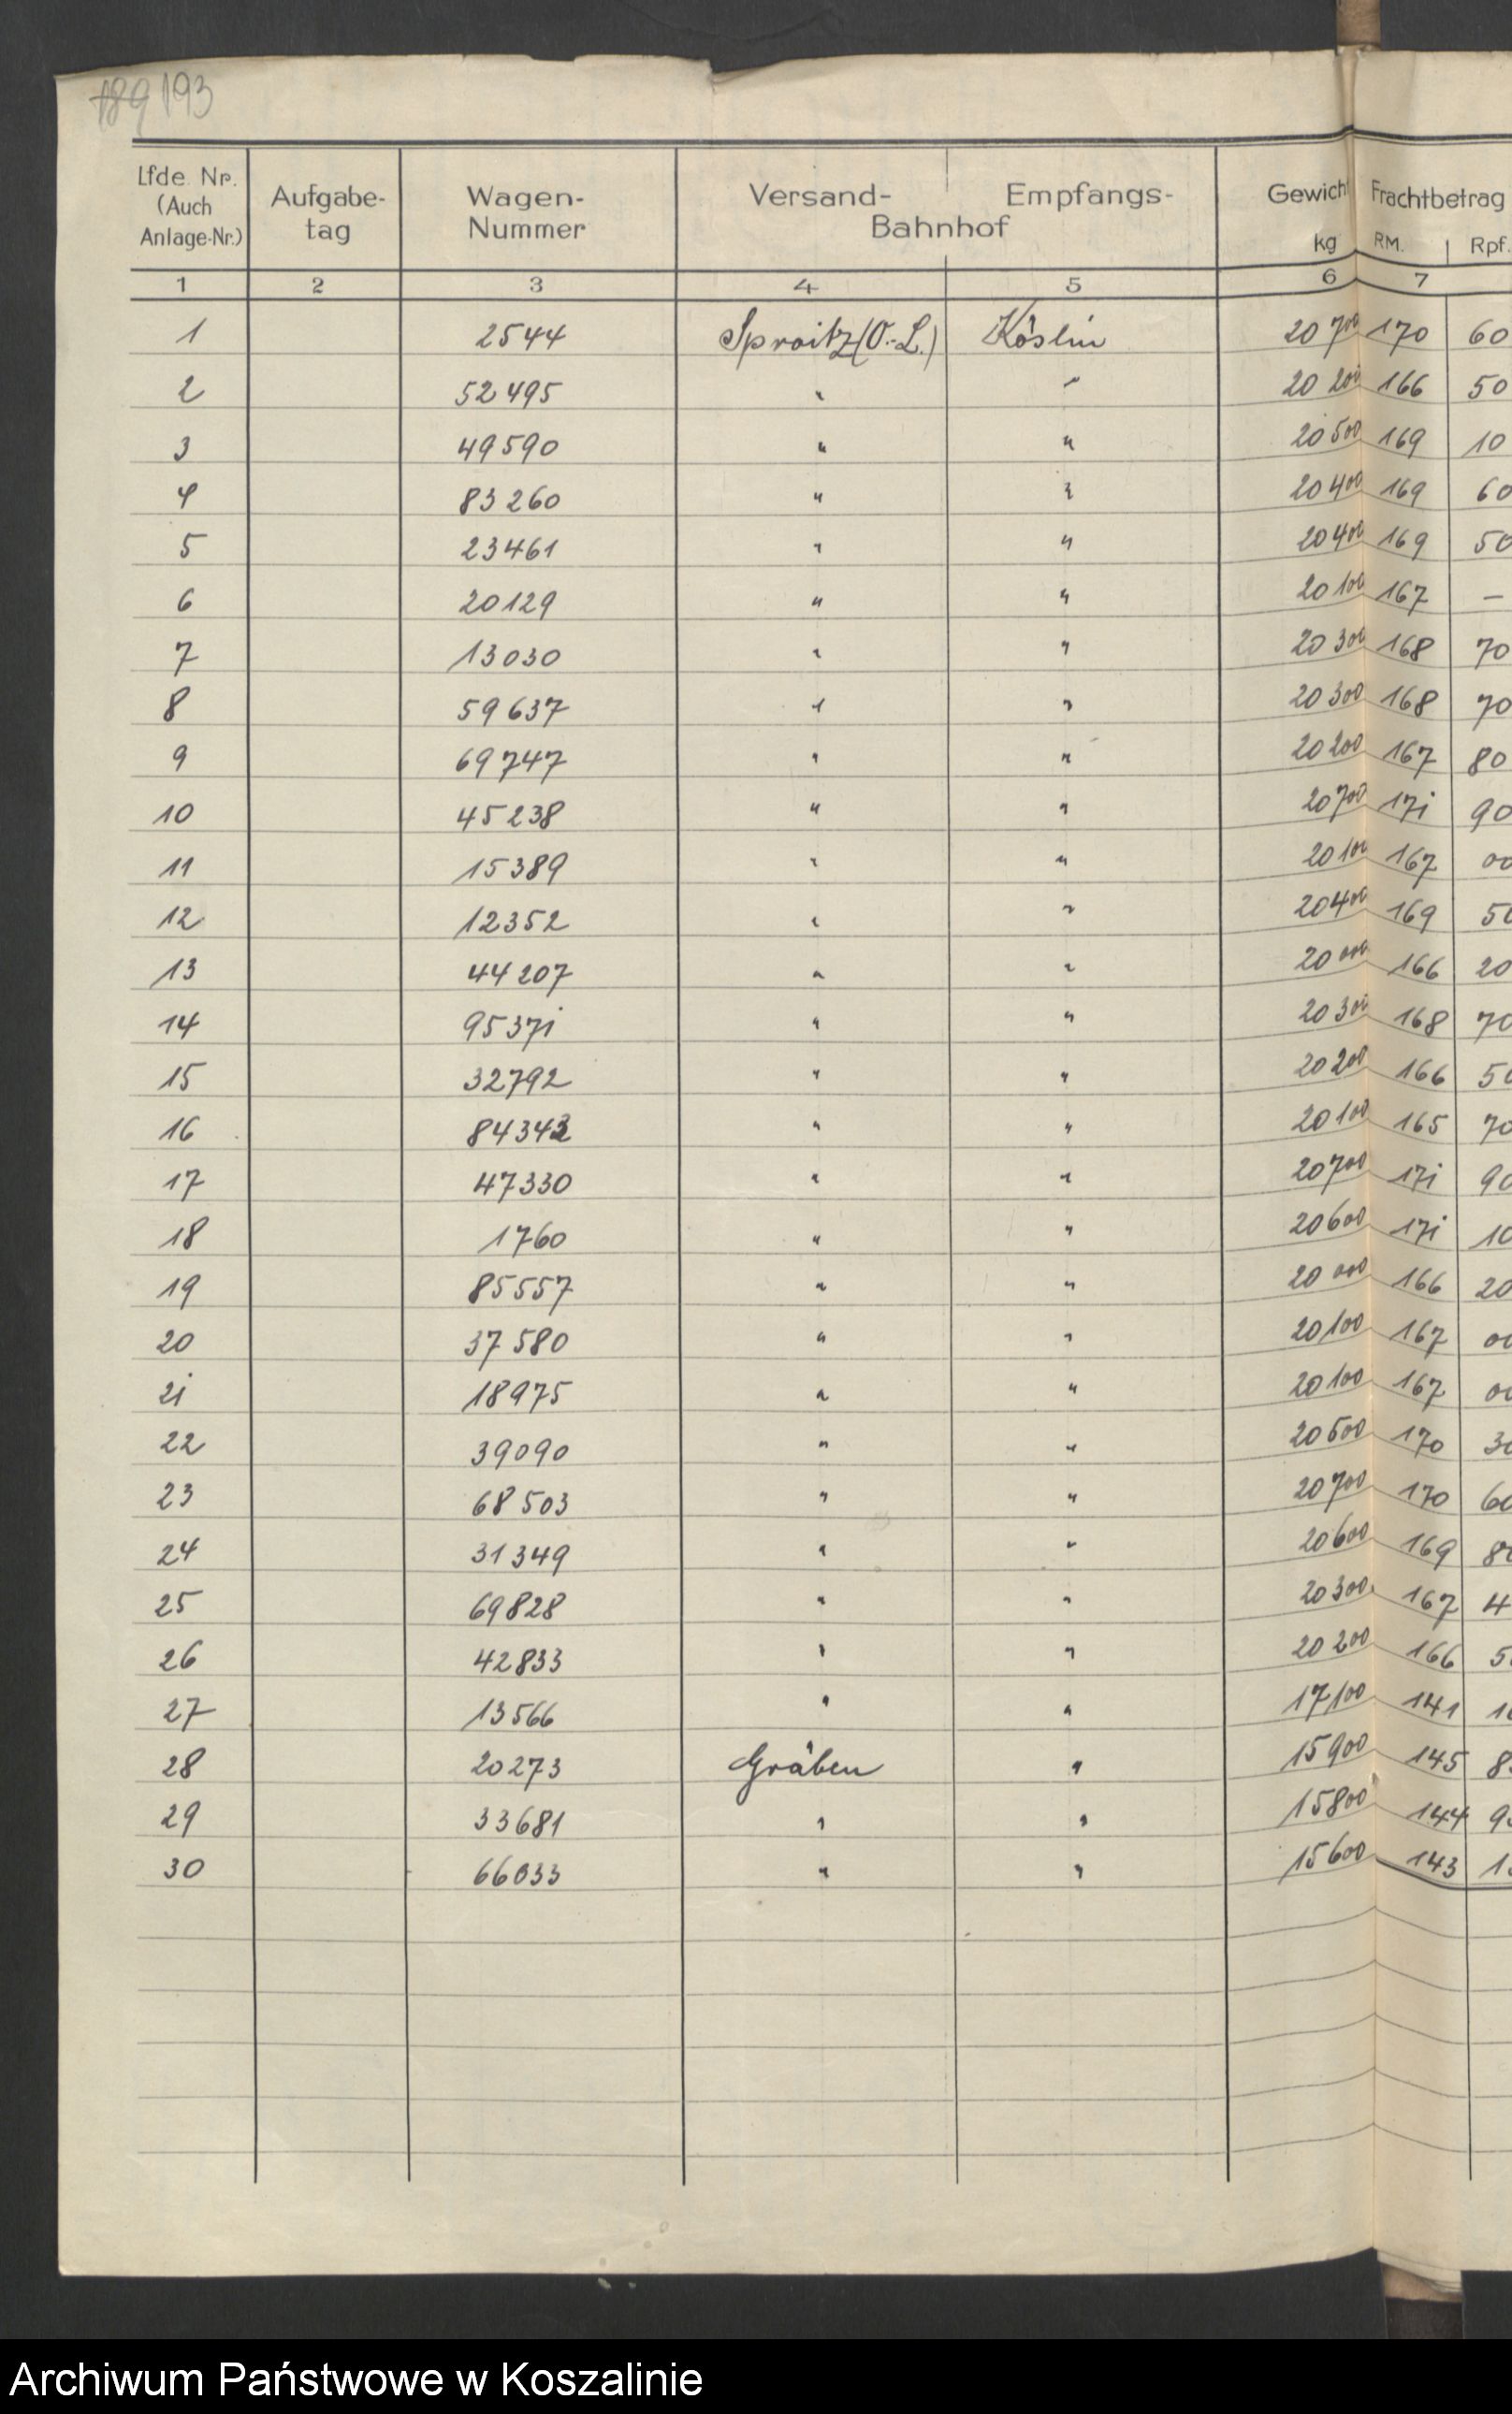 189 193
Lfde Nr. (Auch Anlage-Nr.) Aufgabe-tag Wagen-Nummer Versand- Empfangs- Bahnhof Gewicht kg Frachtbetrag RM. Rpf.
1 2 3 4 5 6 7
1 2544 Sproitz (O.-L.) Köslin 20 700 170 60
2 52495 " " 20 200 166 50
3 49590 " " 20 500 169 10
4 83260 " " 20 400 169 60
5 23461 " " 20 400 169 50
6 20129 " " 20 100 167 –
7 13030 " " 20 300 168 70
8 59637 " " 20 300 168 70
9 69747 " " 20 200 167 80
10 45238 " " 20 700 171 90
11 15389 " " 20 100 167 00
12 12352 " " 20 400 169 50
13 44207 " " 20 000 166 20
14 95371 " " 20 300 168 70
15 32792 " " 20 200 166 50
16 " " 20 100 165 70
17 47330 " " 20 700 171 90
18 1760 " " 20 600 171 10
19 85557 " " 20 000 166 20
20 37580 " " 20 100 167 00
21 18975 " " 20 100 167 00
22 39090 " " 20 500 170 30
23 68503 " " 20 700 170 60
24 31349 " " 20 600 169 8
25 69828 " " 20 300 167 4
26 42833 " " 20 200 166 5
27 13566 " " 17 100 141 1
28 20273 Gräben " 15 900 145 8
29 33681 " " 15 800 144 9
30 66033 " " 15 600 143 1
Archiwum Państwowe w Koszalinie